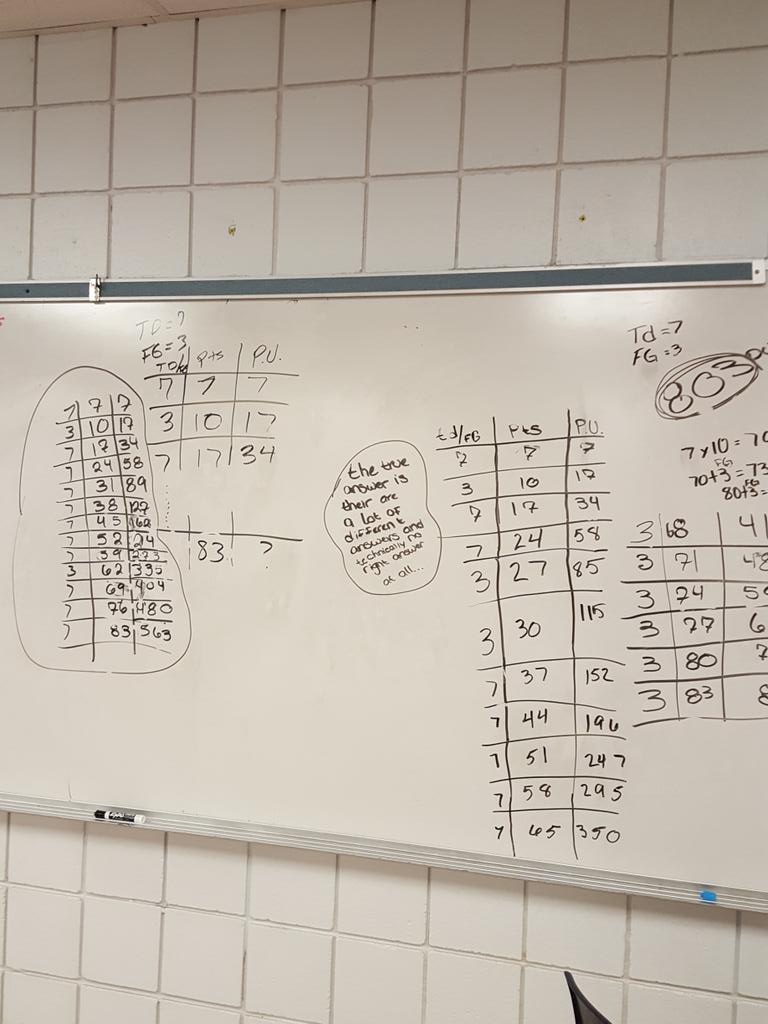 TD=7
FG=3
TD/FG Pts P.U.
7 7 7
3 10 17
7 17 34
83 ?
7 7 7
3 10 17
7 17 34
7 24 58
7 31 89
7 38 127
7 45
7 52
7
3 62 335
7 69 404
7 76 480
7 83 563
the true
answer is
their are
a lot of
different
answers and
technically no
right answer
at all...
td/FG Pts P.U.
7 7 7
3 10 17
7 17 34
7 24 58
3 27 85
3 30 115
7 37 152
7 44 196
7 51 247
7 58 295
7 65 350
Td=7
FG=3
803
7x10=70
FG
70+3=73
FG
80+3=
3 68 41
3 71 48
3 74
3 77 6
3 80 7
3 83 8